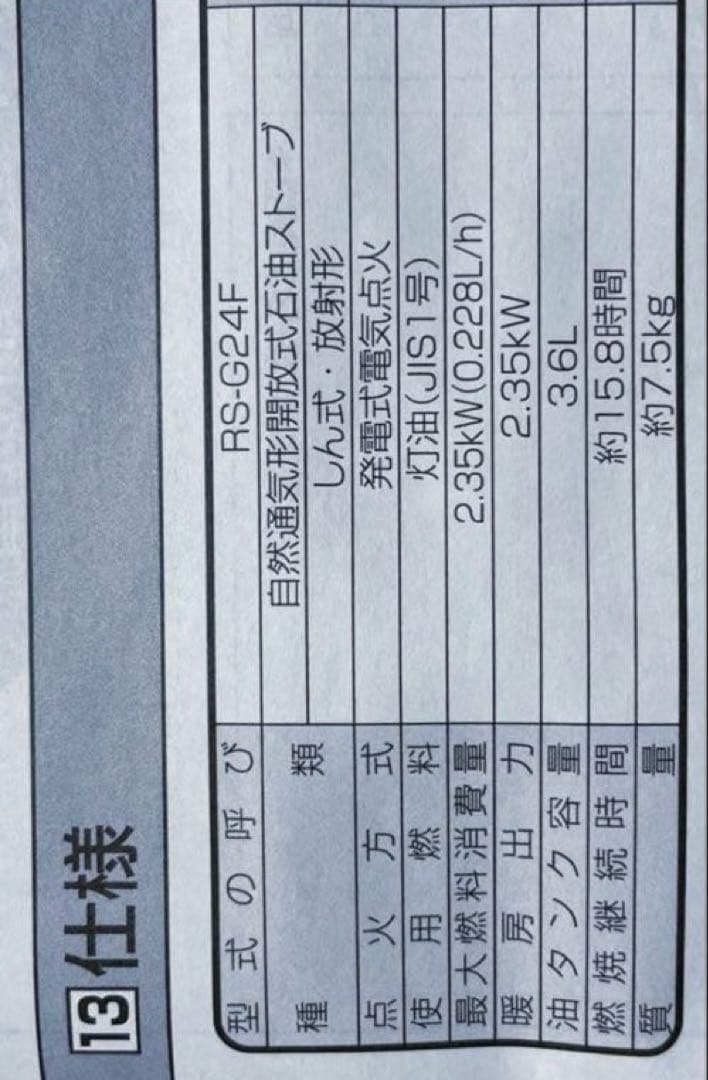 13 仕様
型式の呼び RS-G24F
種類 自然通気形開放式石油ストーブ
しん式・放射形
点火方式 発電式電気点火
使用燃料 灯油(JIS1号)
最大燃料消費量 2.35kW(0.228L/h)
暖房出力 2.35kW
油タンク容量 3.6L
燃焼継続時間 約15.8時間
質量 約7.5kg